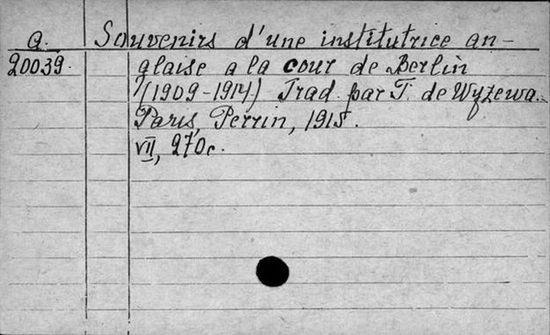 a. Souvenirs d'une institutrice an-
20039. glaise a la cour de Berlin
(1909-1914) Trad. par T. de Wyzewa.
Paris, Perrin, 1915.
VII, 270c.